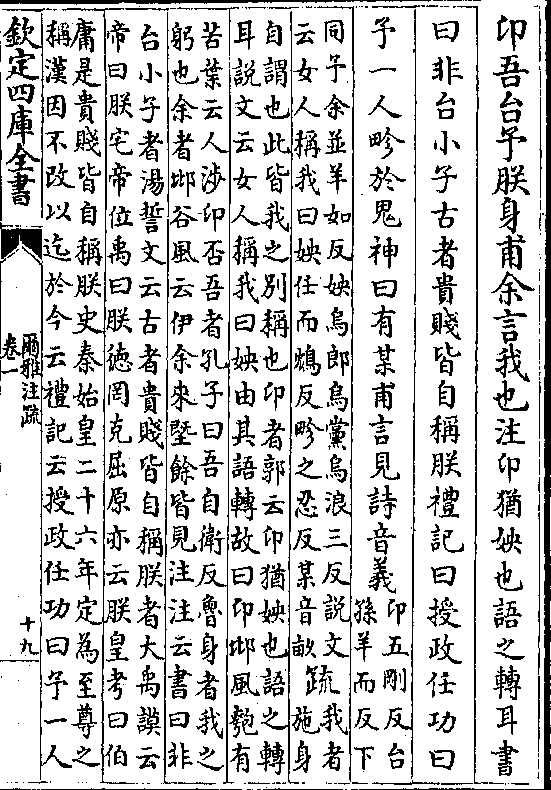 卬吾台予朕身甫余言我也注卬猶姎也語之轉耳書
曰非台小子古者貴賤皆自稱朕禮記曰授政任功曰
予一人畛於鬼神曰有某甫言見詩音義
卬五剛反台
孫羊而反下
同予余並羊如反姎烏郎烏黨烏浪三反說文
云女人稱我曰姎任而鴆反畛之忍反某音畝
疏
我者
施身
自謂也此皆我之别稱也卬者郭云卬猶姎也語之轉
耳說文云女人稱我曰姎由其語轉故曰卬邶風匏有
苦葉云人涉卬否吾者孔子曰吾自衛反魯身者我之
躬也余者邶谷風云伊余來墍餘皆見注注云書曰非
台小子者湯誓文云古者貴賤皆自稱朕者大禹謨云
帝曰朕宅帝位禹曰朕德罔克屈原亦云朕皇考曰伯
庸是貴賤皆自稱朕史秦始皇二十六年定為至尊之
稱漢因不改以迄於今云禮記云授政任功曰予一人
欽定四庫全書
爾雅注疏
卷一
十九